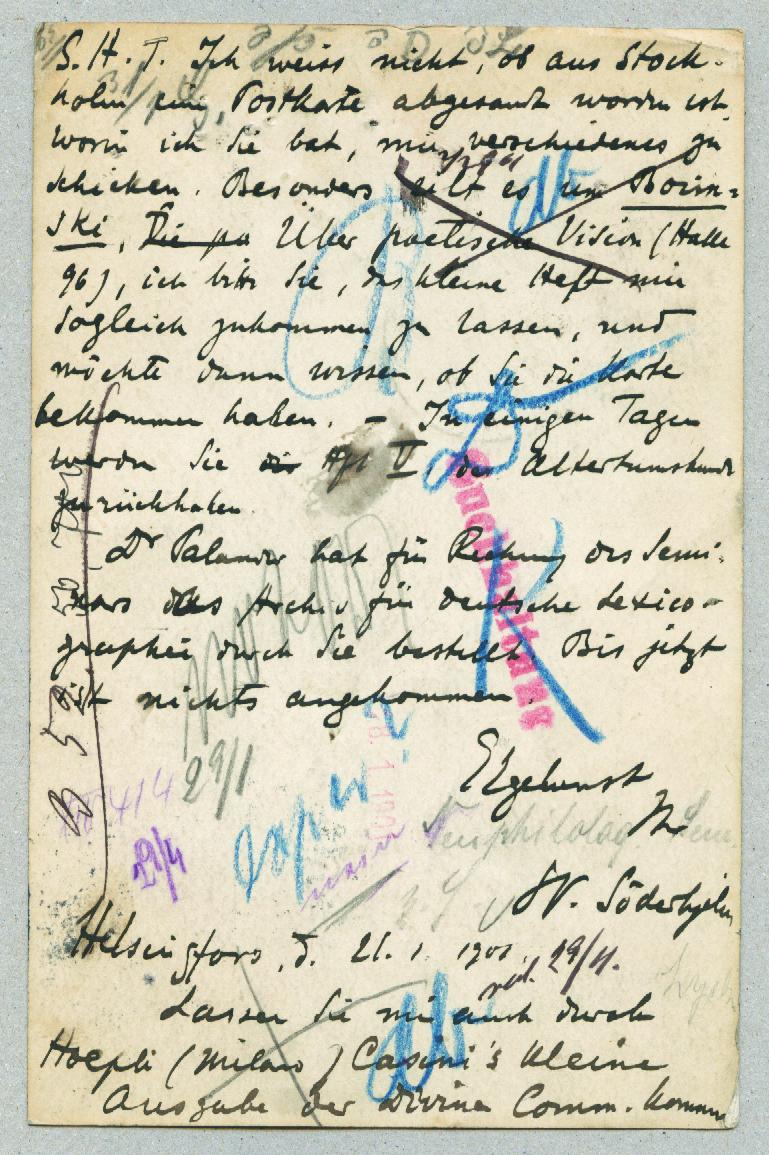 S. H. T. Ich weiss nicht, ob aus Stock-
holm eine Postkarte abgesandt worden ist,
worin ich Sie bat, mir verschiedenes zu
schicken. Besonders gilt es um Borin-
ski, Über poetische Vision (Halle
96), ich bitte Sie, das kleine Heft mir
sogleich zukommen zu lassen, und
möchte dann wissen, ob Sie die Karte
bekommen haben. – In einigen Tagen
werden Sie Hft V der Altertumskunde
zurückhaben.
Dr Palander hat für Rechnung des Semi-
nars das Archiv für deutsche Lexico-
graphie durch Sie bestellt. Bis jetzt
ist nichts angekommen.
29/1
414
29/4
expd.
Ergebenst
Ihr
Neuphilolog. Sem.
W. Söderhjelm
Helsingfors, d. 21. 1. 1901.
29/4.
Lassen Sie mir auch durch
Hoepli (Milano) Casini's kleine
Ausgabe der Divina Comm. kommen